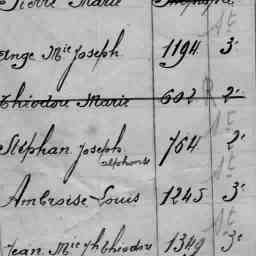 Pierre Marie
Ange Mie Joseph 1194 3e
Théodore Marie 602 2e
Stéphan Joseph 764 2e
alphonse
Ambroise Louis 1245 3e
Jean Mie Jh Théodore 1349 3e